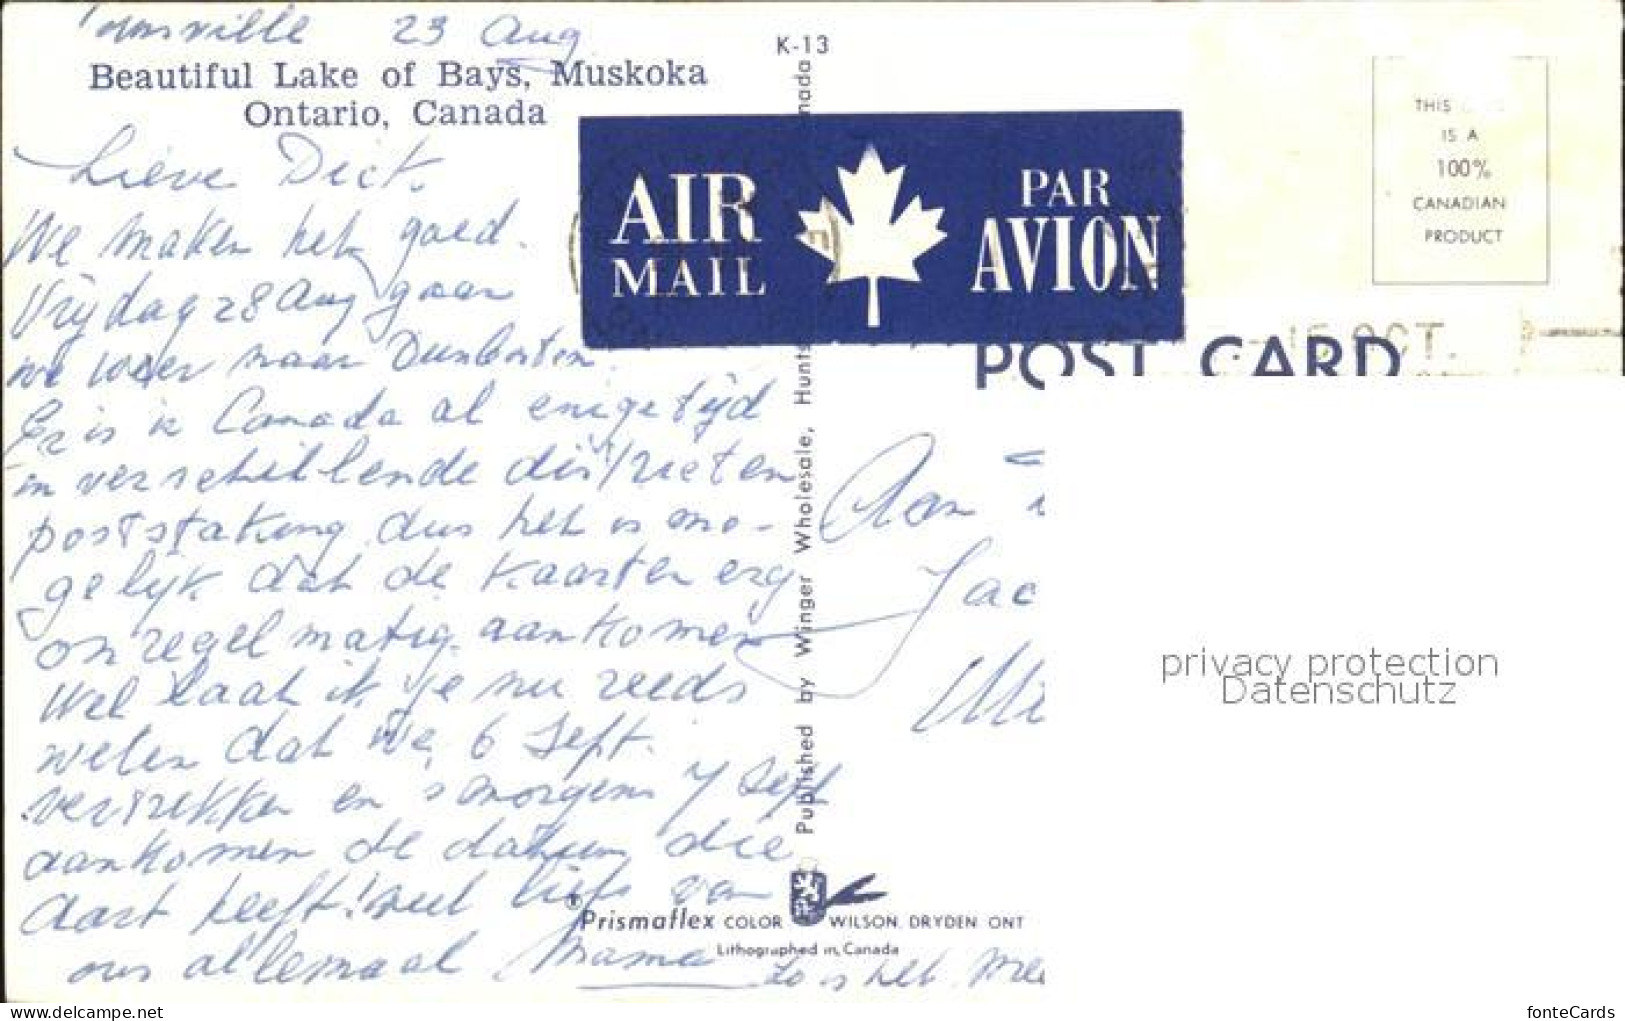 23 Aug
K-13
Beautiful Lake of Bays, Muskoka
Ontario, Canada
Lieve Dick.
We maken het goed.
Vrijdag 28 Aug gaan
we weer naar
Er is in Canada al enige tijd
in verschillende districten
poststaking dus het is mo-
gelijk dat de kaarten erg
onregelmatig aankomen
Wel laat ik je nu reeds
weten dat we 6 Sept.
vertrekken en smorgens 7 Sept
aankomen de datum die
Aart heeft! veel liefs van
ons allemaal Mama
Zo is het
AIR MAIL
PAR AVION
THIS
IS A
100%
CANADIAN
PRODUCT
15 OCT.
POST CARD
Aan
Jac
Published by Winger Wholesale, Hunts nada
Prismaflex COLOR WILSON, DRYDEN ONT
Lithographed in Canada
privacy protection
Datenschutz
www.ansichtskarten-center.de
fonteCards